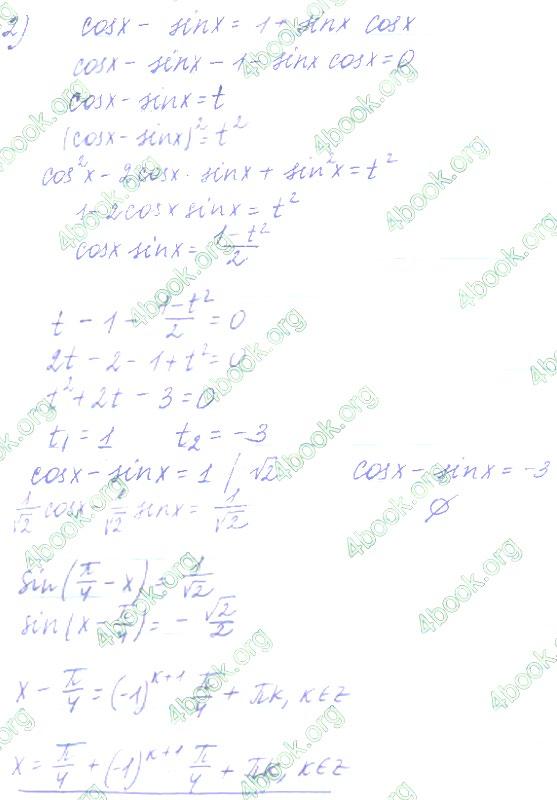 2) cosx - sinx = 1 + sinx cosx
cosx - sinx - 1 - sinx cosx = 0
cosx - sinx = t
(cosx - sinx)² = t²
cos²x - 2cosx · sinx + sin²x = t²
1 - 2cosx sinx = t²
cosx sinx = (1 - t²)/2
t - 1 - (1 - t²)/2 = 0
2t - 2 - 1 + t² = 0
t² + 2t - 3 = 0
t₁ = 1 t₂ = -3
cosx - sinx = 1 / √2 cosx - sinx = -3
1/√2 cosx - 1/√2 sinx = 1/√2 ∅
sin(π/4 - x) = 1/√2
sin(x - π/4) = - √2/2
x - π/4 = (-1)^(k+1) π/4 + πk, k∈z
x = π/4 + (-1)^(k+1) · π/4 + πk, k∈z
4book.org